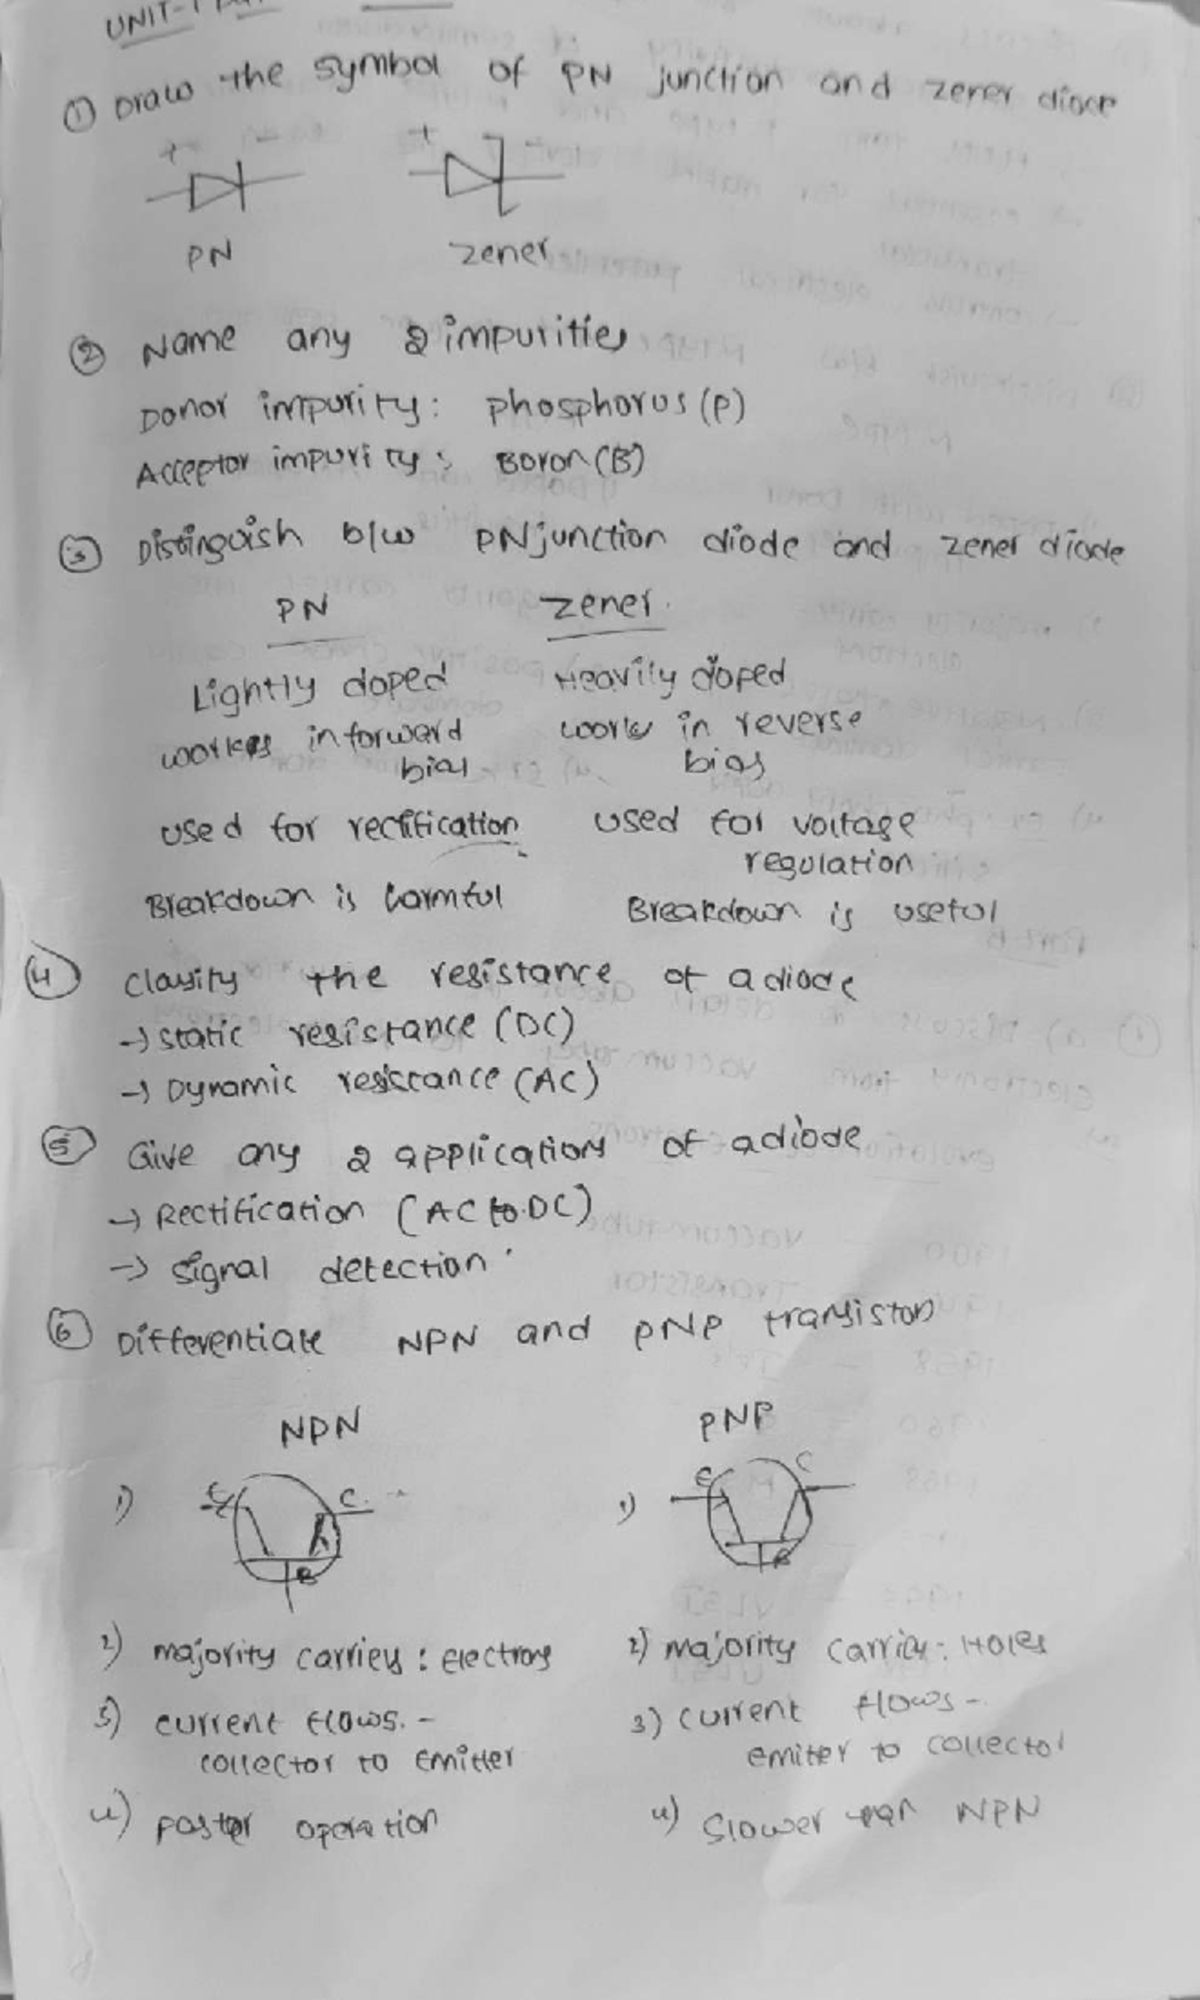 UNIT-1
① Draw the symbol of PN junction and zener diode
+ - + -
PN zener
② Name any 2 impurities
Donor impurity: phosphorus (P)
Acceptor impurity: Boron (B)
③ Distinguish b/w PN junction diode and zener diode
PN zener.
Lightly doped Heavily doped
works in forward bias works in reverse bias
used for rectification used for voltage regulation
Breakdown is harmful Breakdown is useful
④ Classify the resistance of a diode
→ static resistance (DC)
→ Dynamic resistance (AC)
⑤ Give any 2 applications of a diode
→ Rectification (AC to DC)
→ signal detection
⑥ Differentiate NPN and PNP transistors
NPN PNP
1) C. B 1) E C B
2) majority carriers : electrons 2) majority carriers : Holes
3) current flows. - 3) current flows -
collector to emitter emitter to collector
4) faster operation 4) Slower than NPN